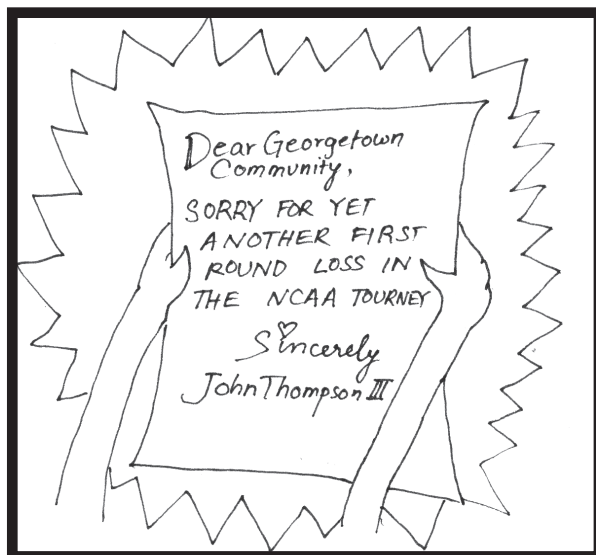 Dear Georgetown
Community,
SORRY FOR YET
ANOTHER FIRST
ROUND LOSS IN
THE NCAA TOURNEY
Sincerely
John Thompson III